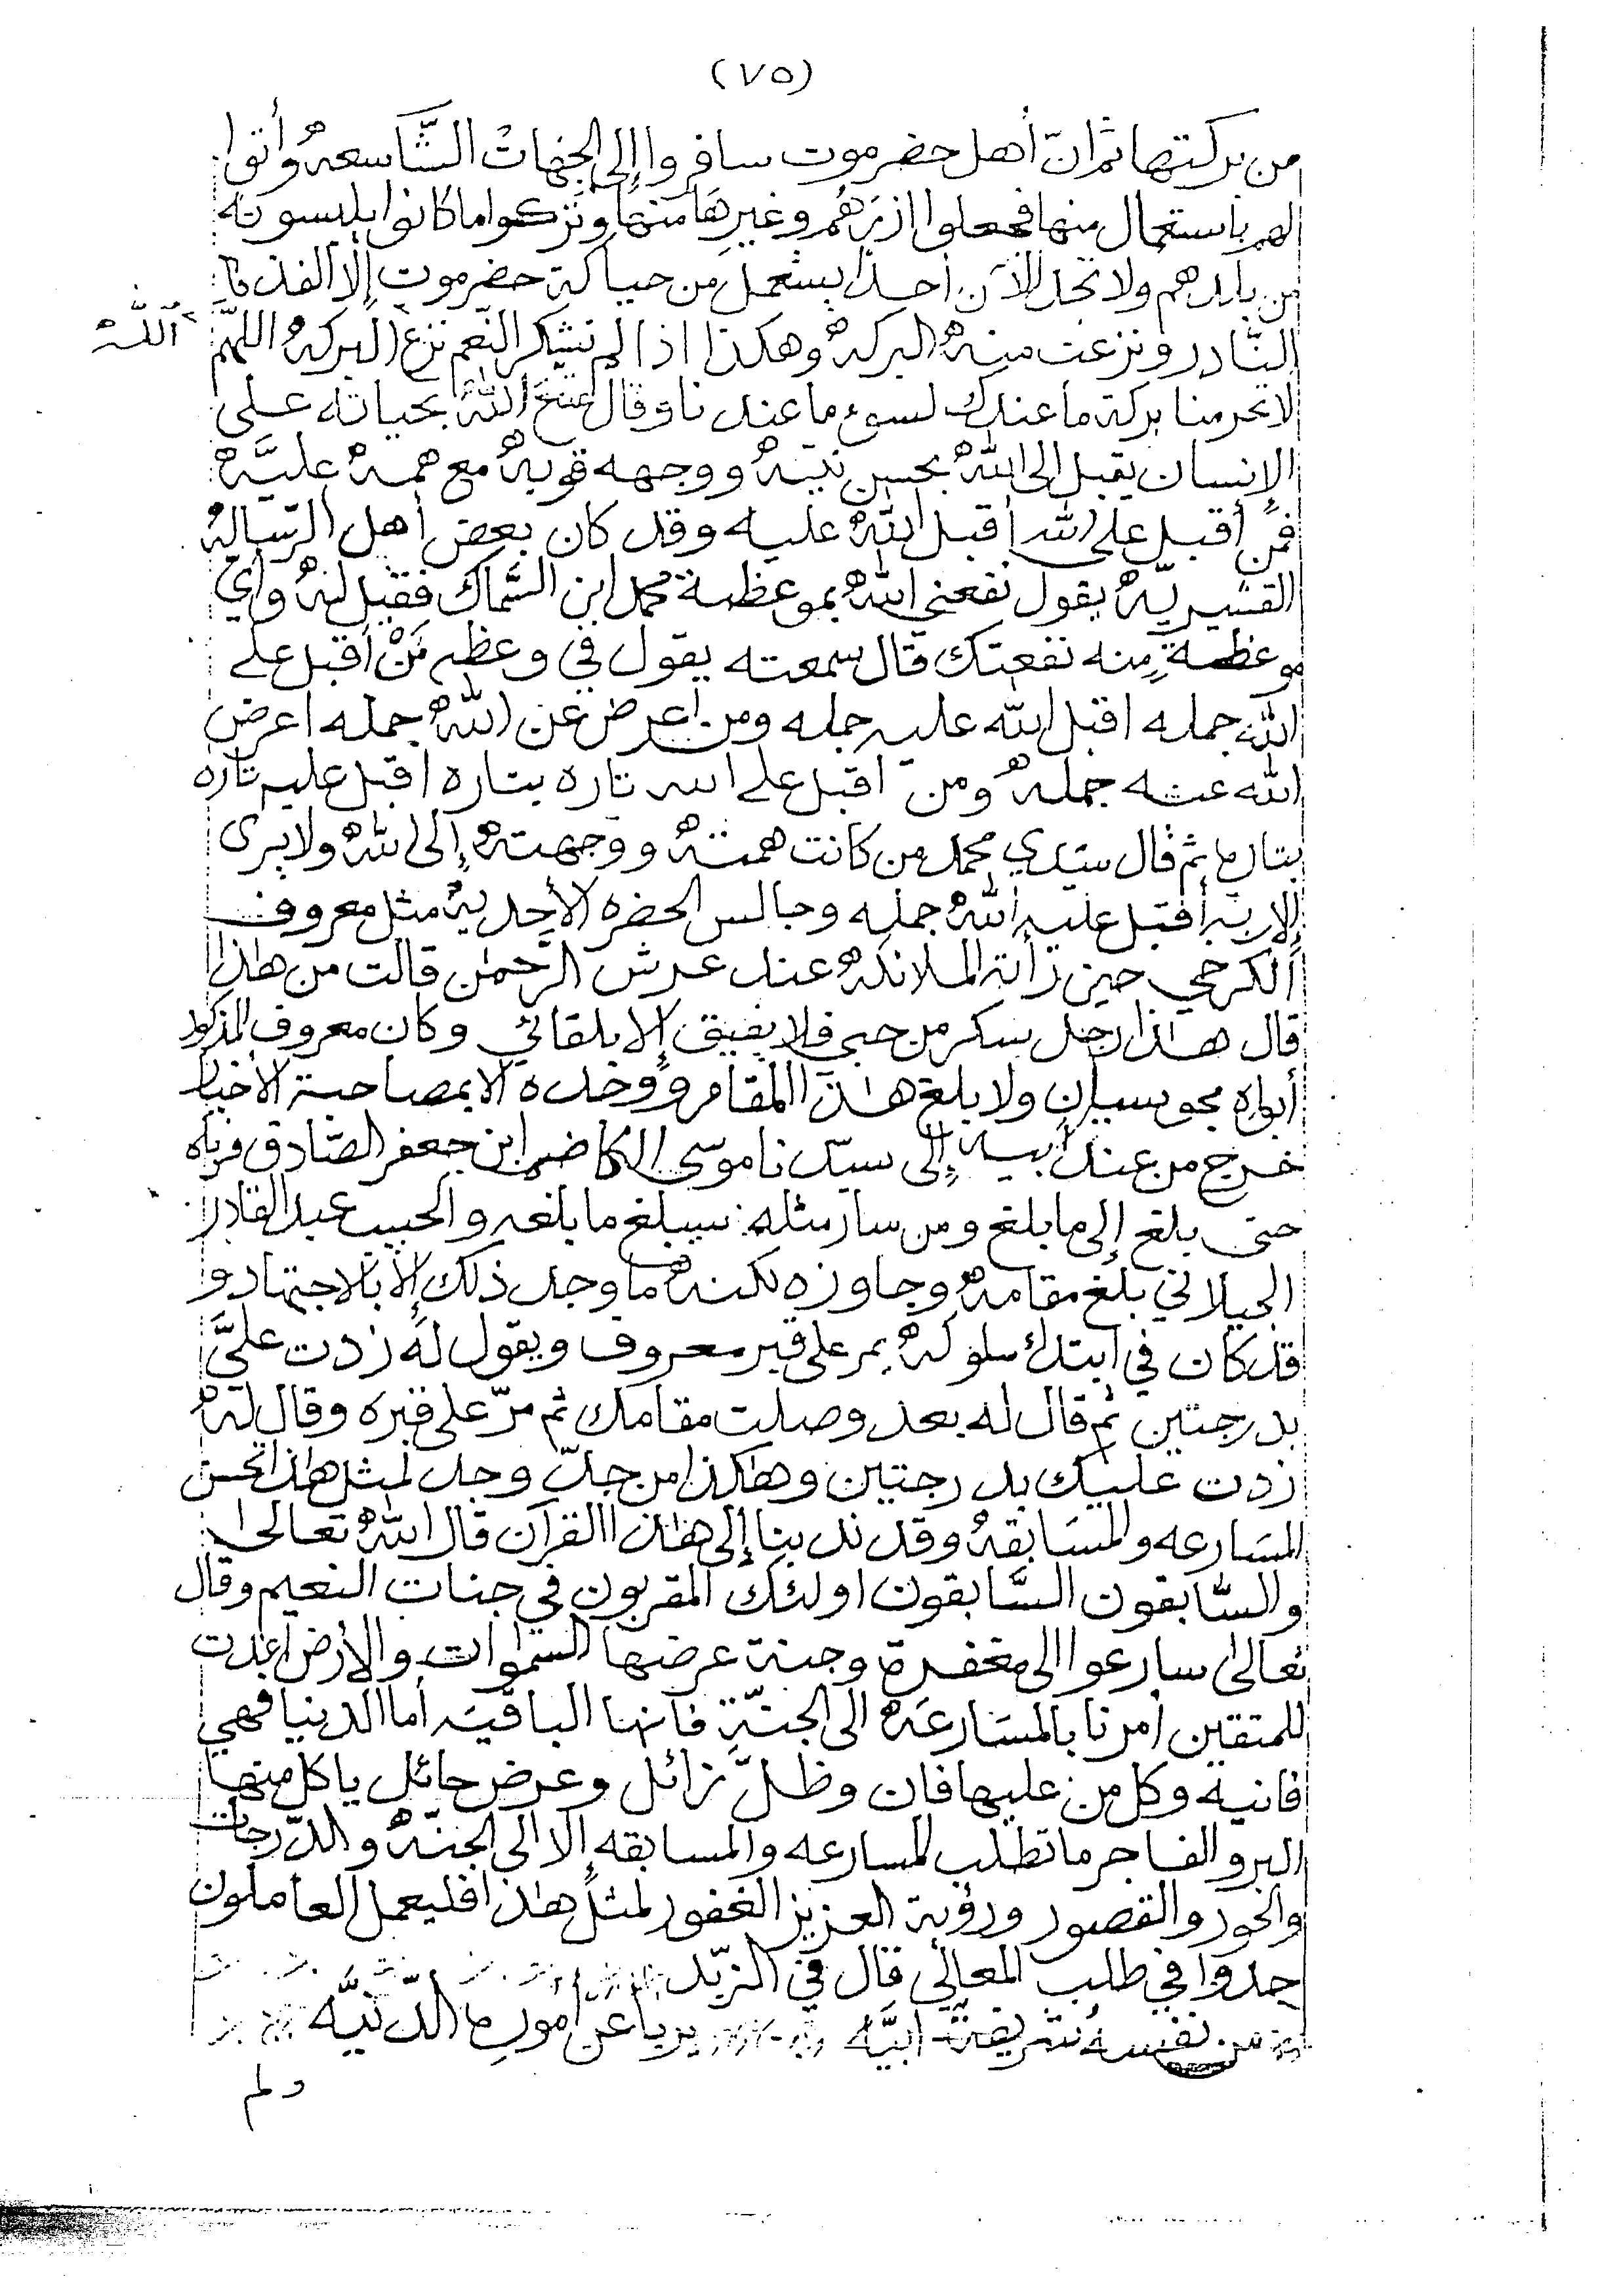 (٧٥)
من بركتها ثم انّ أهل حضرموت سافروا إلى الجهات الشَّاسعه وأتوا
لهم باستعمال منها فجعلوا ازرَهُم وغيرِهَا منها وتركوا ما كانوا يلبسونه
من بلدهم ولا تجد الآن أحدًا يستعمل من حياكة حضرموت إلّا الفذ
النّادر ونزعت منه البركه وهكذا اذا لم تشكر النّعم نزع البركه اللهمَّ
ٱللّٰه
لا تحرمنا بركة ما عندك لسوء ما عندنا وقال متع اللّٰه بحياته على
الإنسان يقبل إلى اللّٰه بحسن نيّه ووجهه قويه مع همه عليَّه
فمن أقبل على الله أقبل اللّٰه عليه وقد كان بعض أهل الرّساله
القشيريّه يقول نفعني اللّٰه بموعظة محمد ابن السَّماك فقيل له وأي
موعظة مِنه نفعتك قال سمعته يقول في وعظه مَنْ أقبل على
اللّٰه جمله اقبل اللّٰه عليه جمله ومن اعرض عن اللّٰه جمله اعرض
الله عنه جمله ومن اقبل على الله تاره بتاره اقبل عليه تاره
بتاره ثم قال سيّدي محمد من كانت همته ووجهته إلى اللّٰه ولا يرى
إلا ربّه أقبل عليه اللّٰه جمله وجالس الحضره الأحديه مثل معروف
ألكرخي حين رأته الملائكه عند عرش الرّحمٰن قالت من هاذا
قال هاذا رجل سكر من حبي فلا يفيق إلا بلقائي وكان معروف المذكور
أبواه مجوسيان ولا بلغ هاذا المقام ووجده الا بمصاحبة الاخيار
خرج من عند أبيه إلى سيّدنا موسى الكاضم ابن جعفر الصّادق فربّاه
حتى بلغ إلى ما بلغ ومن سار مثله سيبلغ ما بلغه والحبيب عبدالقادر
الجيلاني بلغ مقامه وجاوزه لكنه ما وجد ذلك إلّا بالاجتهاد و
قد كان في ابتداء سلوكه يمر على قبر معروف ويقول لَه زدت عليَّ
بدرجتين ثم قال له بعد وصلت مقامك ثم مرّ على قبره وقال له
زدت عليك بدرجتين وهاكذا من جدّ وجد لمثل هاذا تحسن
المسَارعه والمسَابقه وقد ندبنا إلى هاذا القرآن قال اللّٰه تعالى
والسّابقون السَّابقون اولئك المقربون في جنات النعيم وقال
تعالى سارعوا الى مغفرة وجنة عرضها السموات والأرض اعدت
للمتقين أمرنا بالمسَارعَه الى الجنّةِ فانها الباقيَه أما الدنيا فهي
فانية وكل من عليها فان وظلَّ زائل وعرض حائل ياكل منها
البر والفاجر ما تطلب المسارعه والمسابقه إلا الى الجنّه والدّرجات
والحور والقصور ورؤية العزيز الغفور لمثل هاذا فليعمل العاملون
جدوا في طلب المعالي قال في الزبّد
من نفسه شريفة ابيَّه يربأ عن أمورِه الدّنيَّه
ولم